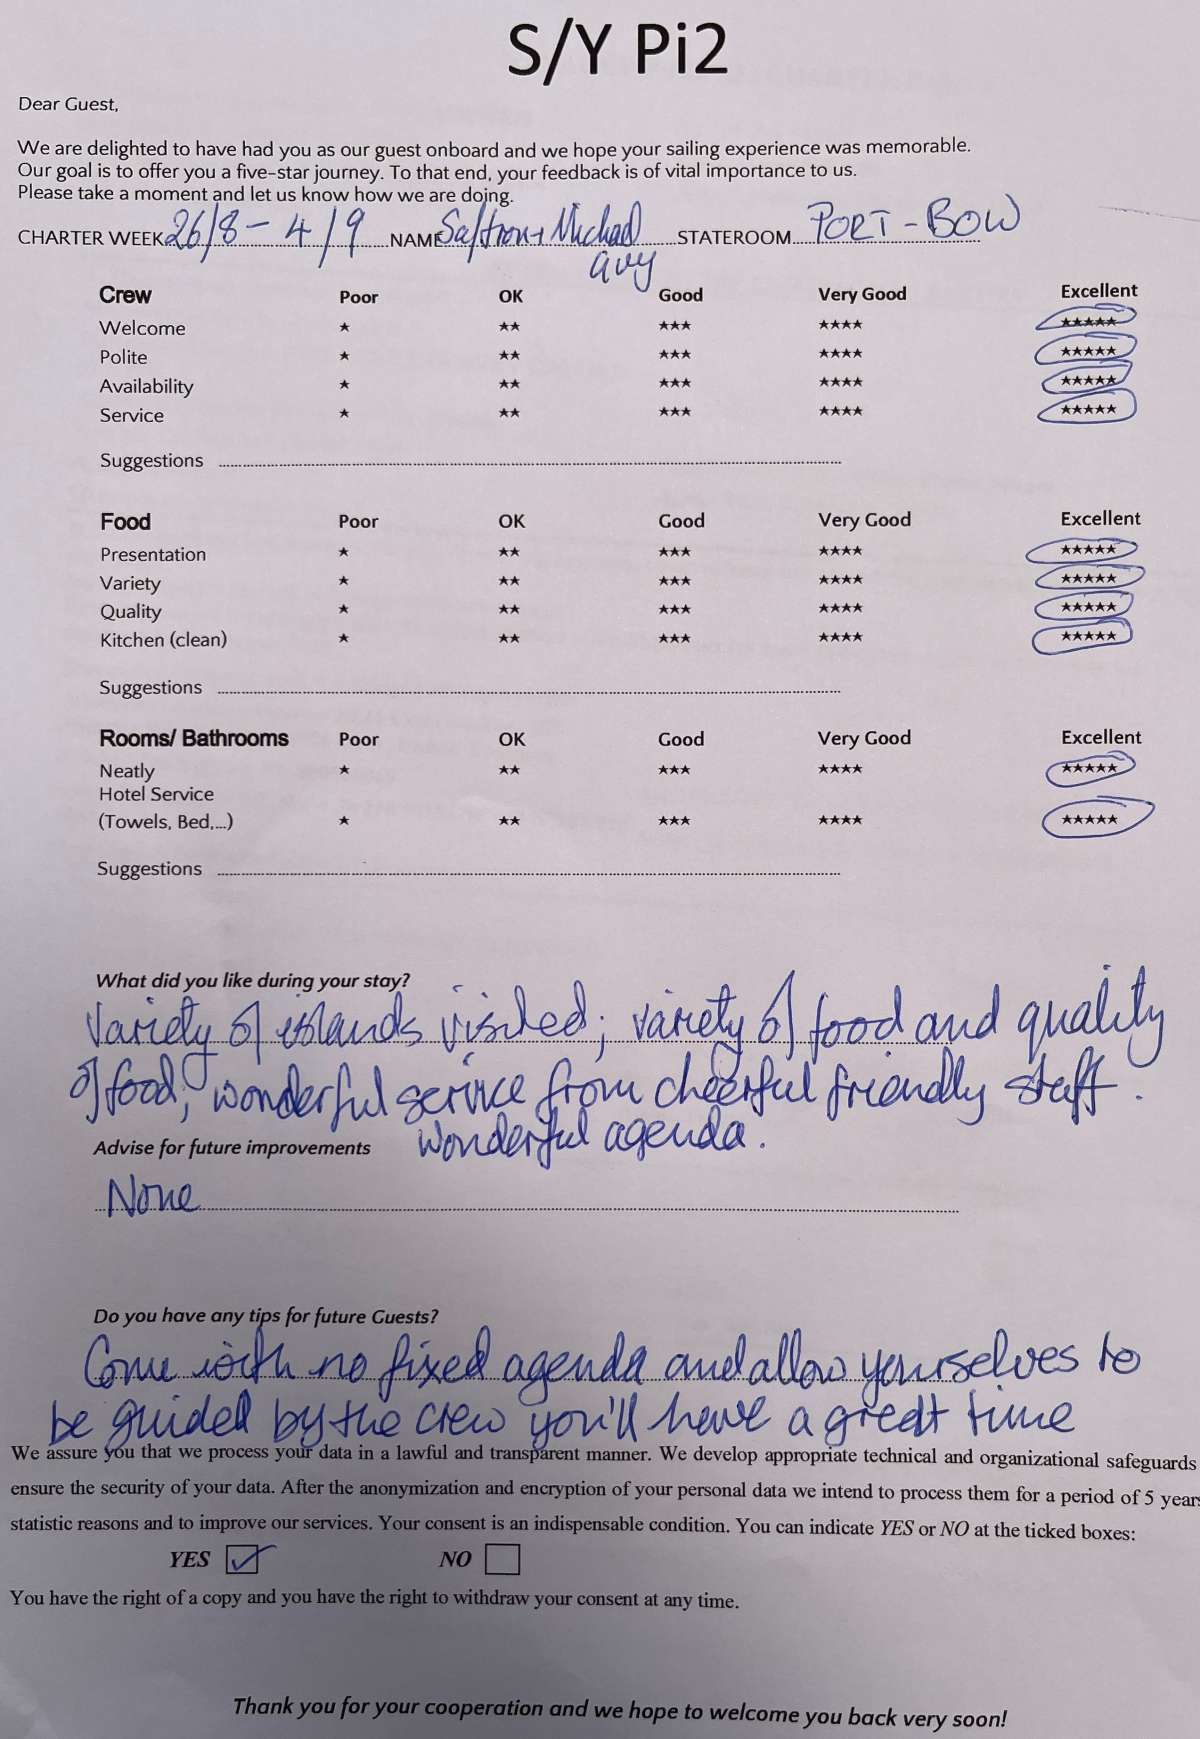 S/Y Pi2
Dear Guest,
We are delighted to have had you as our guest onboard and we hope your sailing experience was memorable.
Our goal is to offer you a five-star journey. To that end, your feedback is of vital importance to us.
Please take a moment and let us know how we are doing.
CHARTER WEEK 26/8 - 4/9 NAME Saffron + Michael STATEROOM PORT - BOW
Crew Poor OK Good Very Good Excellent
Welcome ★ ★★ ★★★ ★★★★ ★★★★★
Polite ★ ★★ ★★★ ★★★★ ★★★★★
Availability ★ ★★ ★★★ ★★★★ ★★★★★
Service ★ ★★ ★★★ ★★★★ ★★★★★
Suggestions
Food Poor OK Good Very Good Excellent
Presentation ★ ★★ ★★★ ★★★★ ★★★★★
Variety ★ ★★ ★★★ ★★★★ ★★★★★
Quality ★ ★★ ★★★ ★★★★ ★★★★★
Kitchen (clean) ★ ★★ ★★★ ★★★★ ★★★★★
Suggestions
Rooms/ Bathrooms Poor OK Good Very Good Excellent
Neatly ★ ★★ ★★★ ★★★★ ★★★★★
Hotel Service
(Towels, Bed,...) ★ ★★ ★★★ ★★★★ ★★★★★
Suggestions
What did you like during your stay?
Variety of islands visited; variety of food and quality
of food; wonderful service from cheerful friendly staff.
wonderful agenda.
Advise for future improvements
None
Do you have any tips for future Guests?
Come with no fixed agenda and allow yourselves to
be guided by the crew you'll have a great time
We assure you that we process your data in a lawful and transparent manner. We develop appropriate technical and organizational safeguards
ensure the security of your data. After the anonymization and encryption of your personal data we intend to process them for a period of 5 years
statistic reasons and to improve our services. Your consent is an indispensable condition. You can indicate YES or NO at the ticked boxes:
YES NO
You have the right of a copy and you have the right to withdraw your consent at any time.
Thank you for your cooperation and we hope to welcome you back very soon!